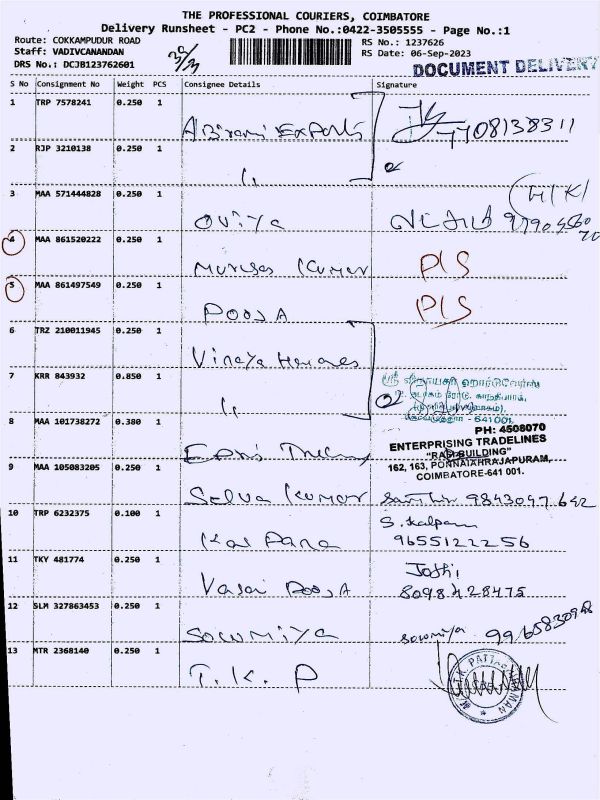 THE PROFESSIONAL COURIERS, COIMBATORE
Delivery Runsheet - PC2 - Phone No.:0422-3505555 - Page No.:1
Route: COKKAMPUDUR ROAD
RS No.: 1237626
Staff: VADIVCANANDAN
RS Date: 06-Sep-2023
DRS No.: DCJB123762601
DOCUMENT DELIVERY
S No Consignment No Weight PCS Consignee Details Signature
1 TRP 7578241 0.250 1 ABirami Exports 7708138311
2 RJP 3210138 0.250 1 "
3 MAA 571444828 0.250 1 Oviya
4 MAA 861520222 0.250 1 Muruges Kumar P/S
5 MAA 861497549 0.250 1 POOJA P/S
6 TRZ 210011945 0.250 1 Vinaya
7 KRR 843932 0.850 1 "
ஸ்ரீ விநாயகா ஹார்டுவேர்ஸ்
641 001.
8 MAA 101738272 0.380 1
PH: 4508070
ENTERPRISING TRADELINES
BUILDING"
162, 163, PONNAIAHRAJAPURAM,
COIMBATORE-641 001.
9 MAA 105083205 0.250 1 Selva Kumar 9843047642
10 TRP 6232375 0.100 1 Kal Pana S. Kalpana
9655122256
11 TKY 481774 0.250 1 Vasai POOJA Joshi
8098428475
12 SLM 327863453 0.250 1 Sowmiya Sowmiya 9965830948
13 MTR 2368140 0.250 1 T. K. P